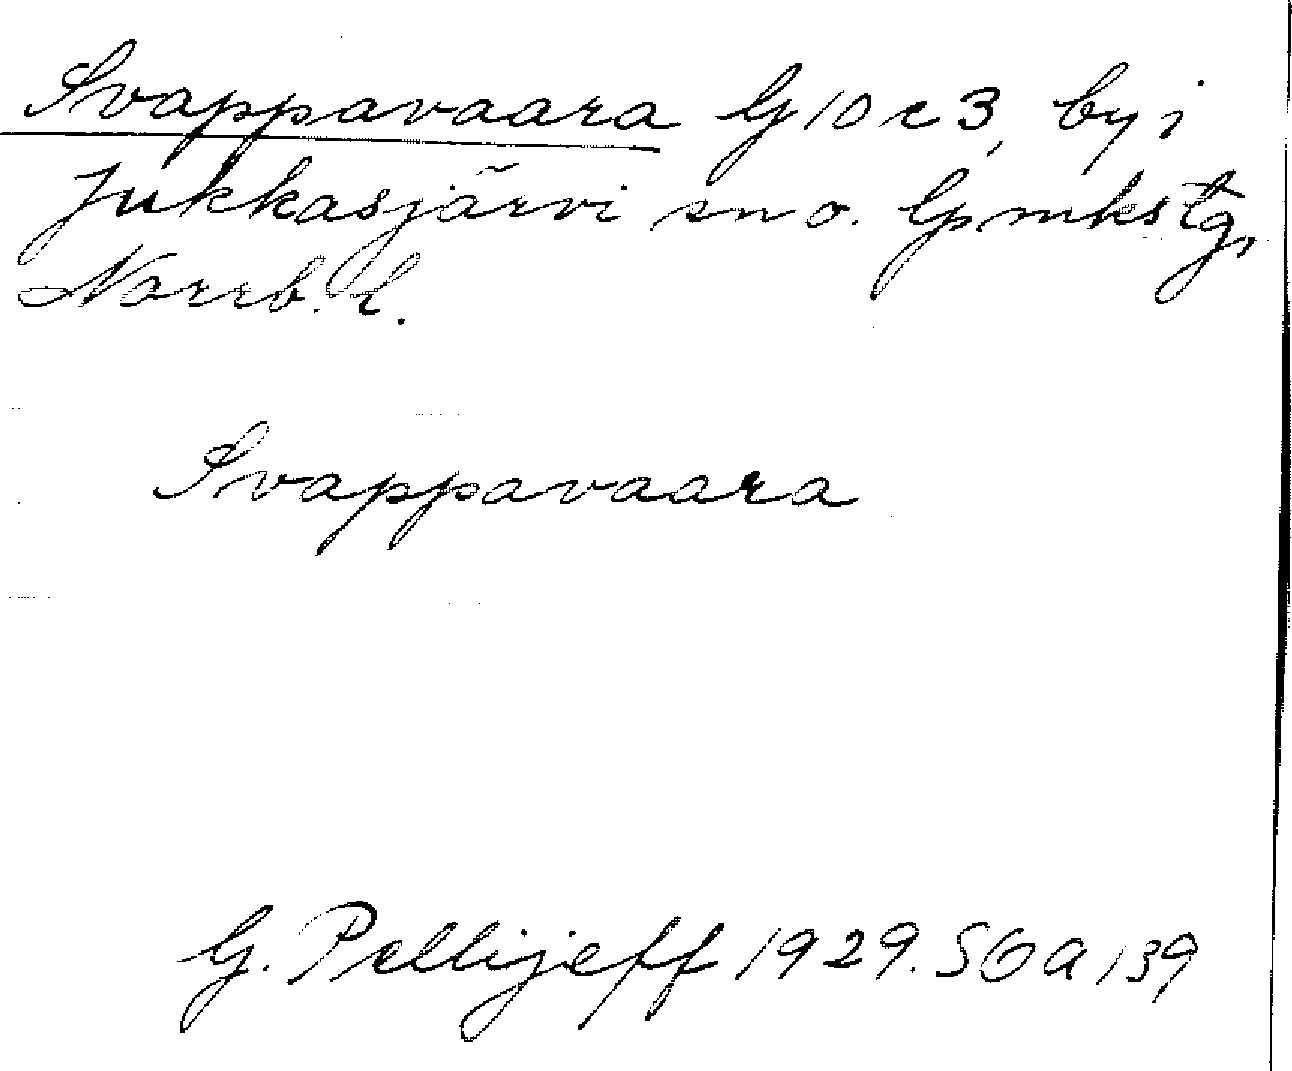 Svappavaara G 10 c 3, by i
Jukkasjärvi sn o. Gpmkstg,
Norrb. l.
Svappavaara
G. Pellijeff 1929. SOA 139